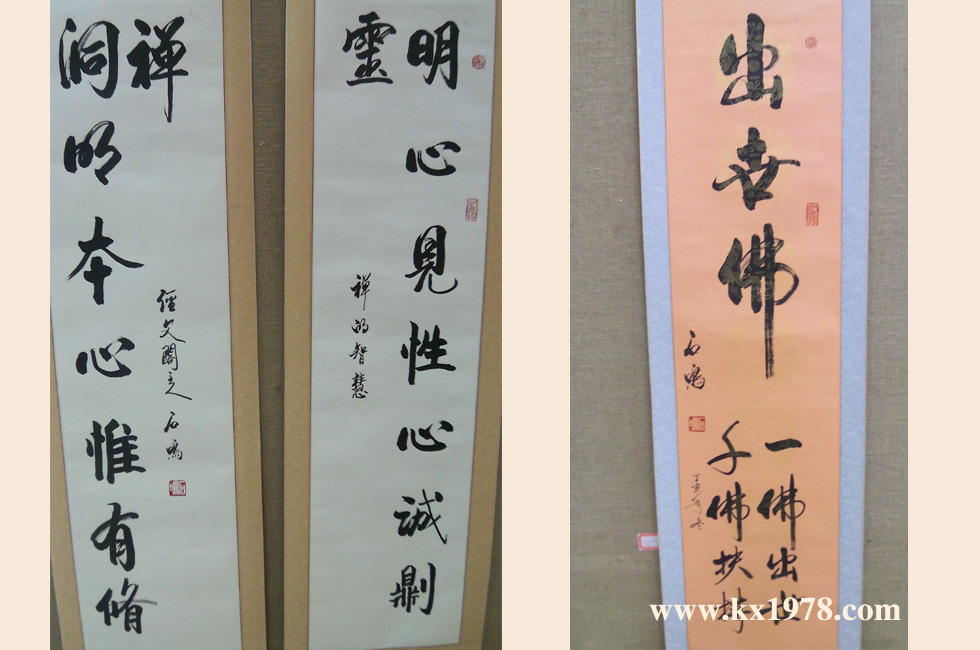 明心見性心誠則
靈
禅的智慧
洞明本心惟有脩
禅
經文閣主人 石鳴
出世佛
一佛出世
千佛扶持
石鳴
www.kx1978.com